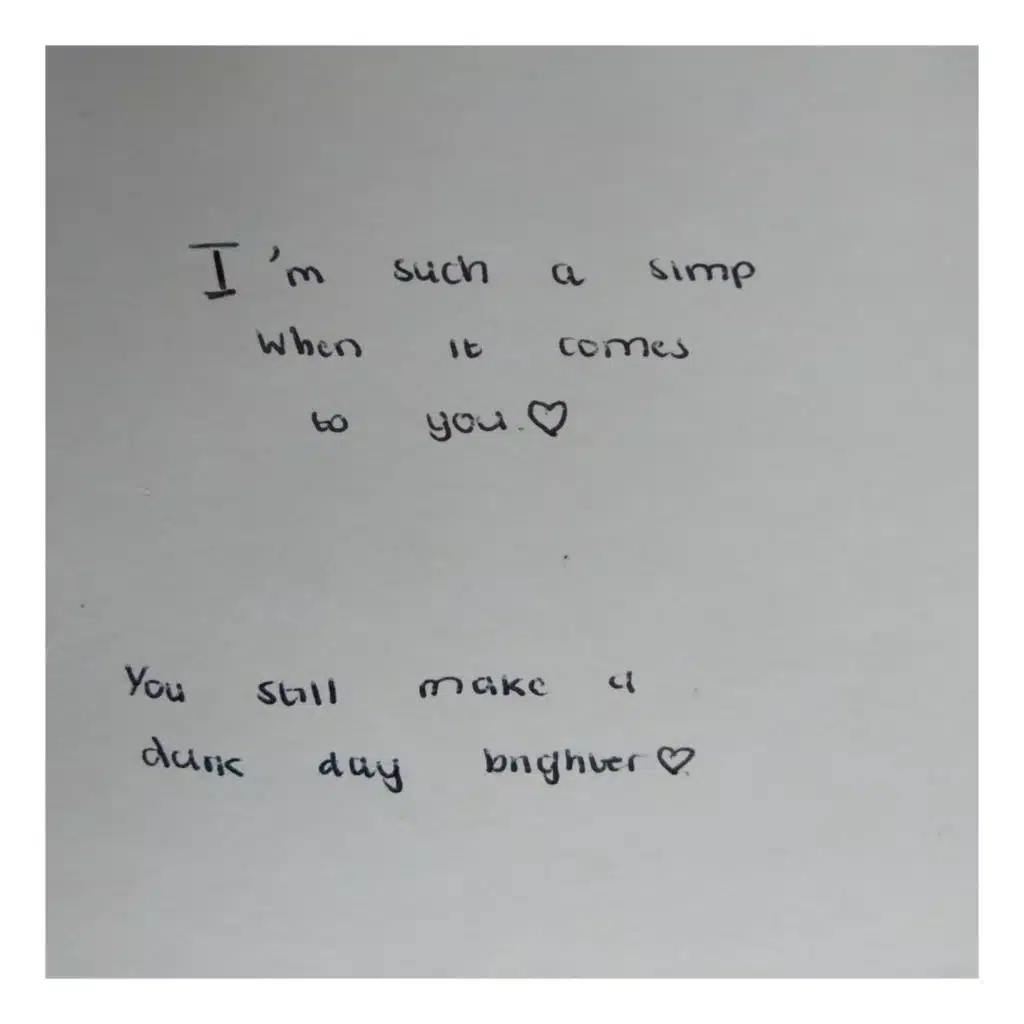 I'm such a simp
when it comes
to you.♡
You still make a
dark day brighter♡.